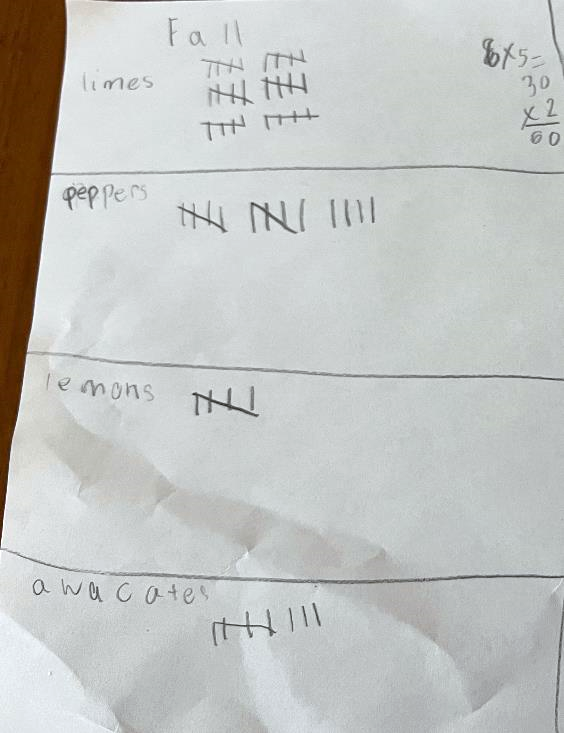 Fall
limes
6x5=
30
x2
60
peppers
lemons
awacates